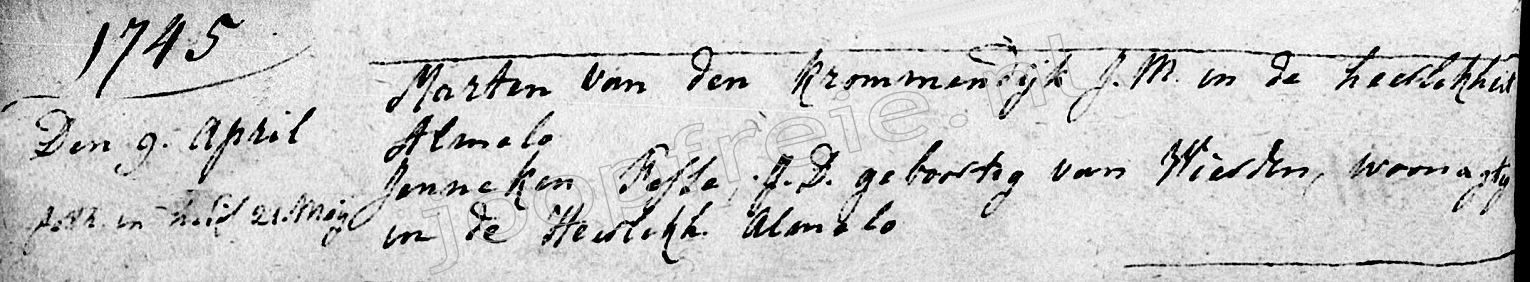 1745
Den 9. April
in 21 Meij
Marten van den Krommendijk J.M. in de heerlikheid
Almelo
Jenneken Fesse, J.D. geboortig van Wierden, woonagtig
in de Heerlikh. Almelo
joopfreie.nl